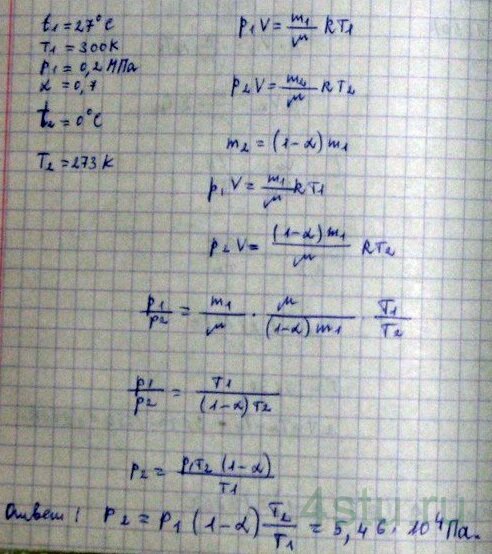 t₁ = 27°C
T₁ = 300K
p₁ = 0,2 МПа
α = 0,7
t₂ = 0°C
T₂ = 273K
p₁V = m₁/μ RT₁
p₂V = m₂/μ RT₂
m₂ = (1-α)m₁
p₁V = m₁/μ RT₁
p₂V = (1-α)m₁/μ RT₂
p₁/p₂ = m₁/μ · μ/(1-α)m₁ · T₁/T₂
p₁/p₂ = T₁/(1-α)T₂
p₂ = p₁T₂(1-α)/T₁
Ответ: p₂ = p₁(1-α) T₂/T₁ = 5,46 · 10⁴ Па.
4stu.ru